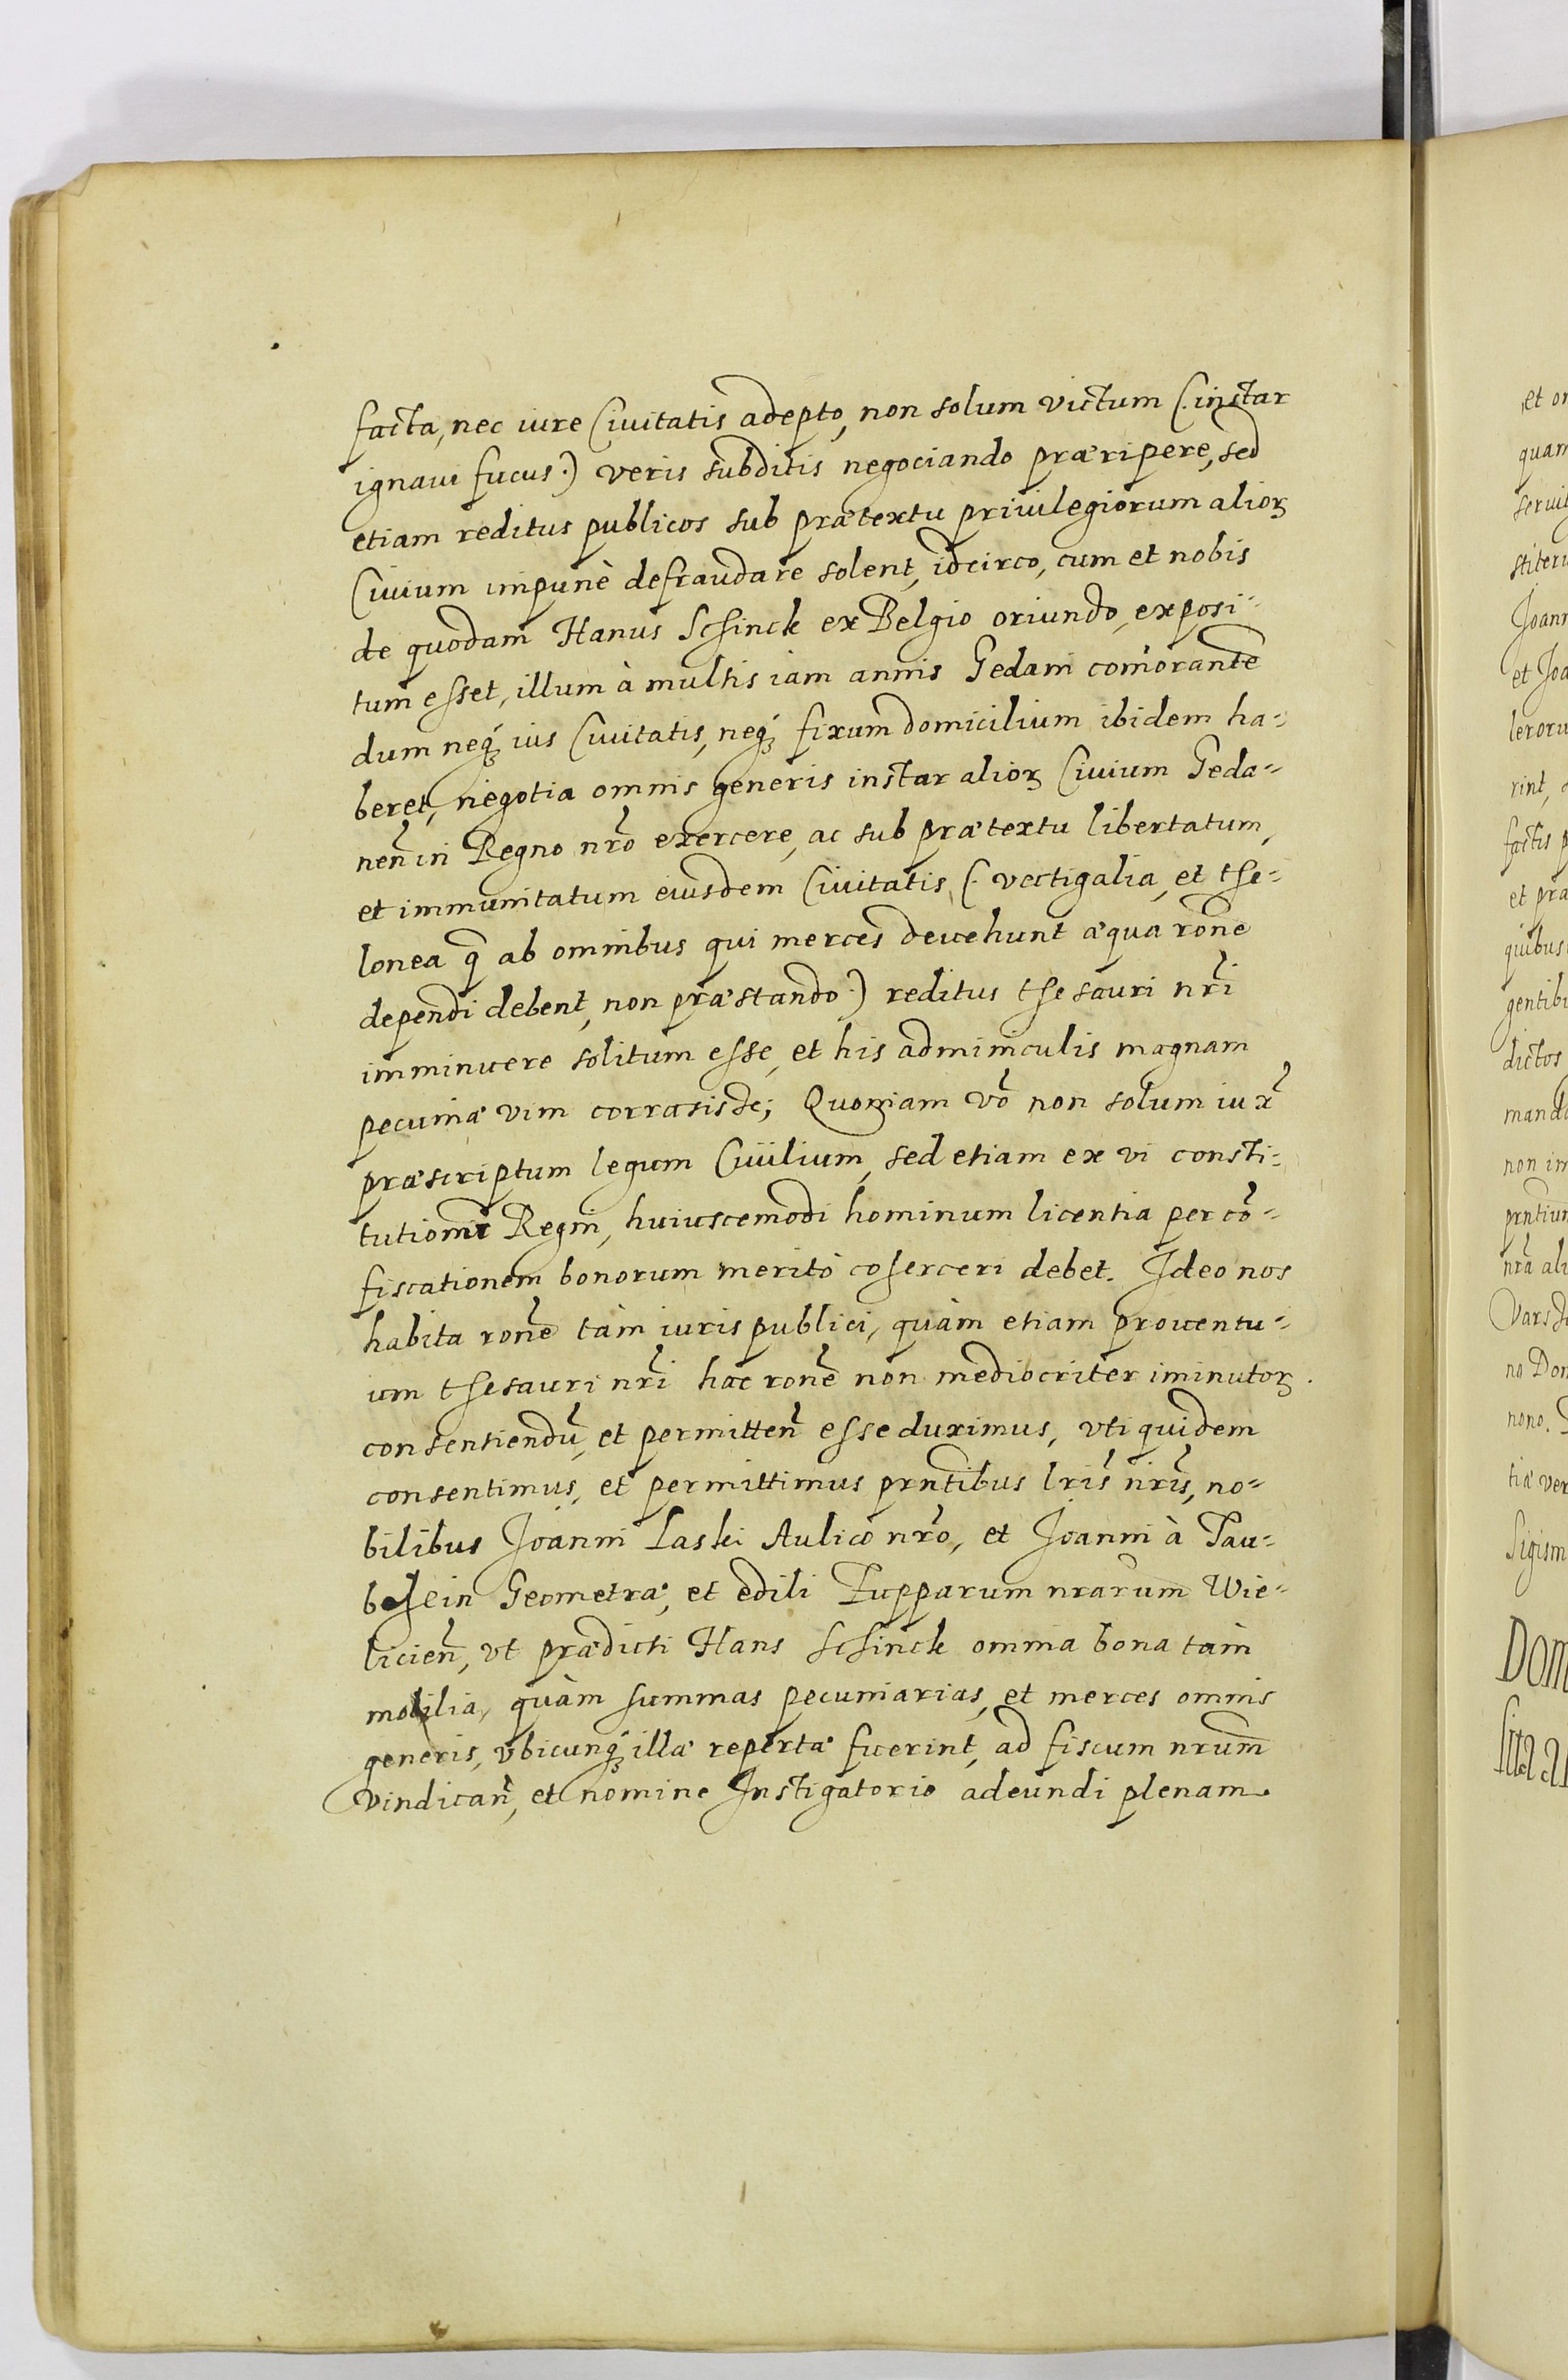 facta, nec iure Ciuitatis adepto, non solum victum (. instar
ignaui fucus .) veris subditis negociando præripere, sed
etiam reditus publicos sub prætextu priuilegiorum alioꝝ
Ciuium impunè defraudare solent, idcirco, cum et nobis
de quodam Hanus Schinck ex Belgio oriundo, exposi-
tum esset, illum à multis iam annis Gedani com̃orante
dum neqꝫ ius Ciuitatis, neqꝫ fixum domicilium ibidem ha-
beret, negotia omnis generis instar alioꝝ Ciuium Geda-
nen̄ in Regno nr̄o exercere, ac sub prætextu libertatum,
et immunitatum eiusdem Ciuitatis (. vectigalia, et the-
lonea q̄ ab omnibus qui merces deuehunt æqua rōne
dependi debent, non præstando .) reditus thesauri nr̄i
imminuere solitum esse, et his adminiculis magnam
pecuniæ vim corrasisse; Quoniam vō non solum iux̄
præscriptum legum Ciuilium, sed etiam ex vi consti-
tutionis Regni, huiuscemodi hominum licentia per cō-
fiscationem bonorum meritò coherceri debet. Ideo nos
habita ronē tàm iuris publici, quàm etiam prouentu-
um thesauri nr̄i hac ronē non mediocriter iminutoꝝ
consentiendū, et permitten̄ esse duximus, vti quidem
consentimus, et permittimus prntibus lr̄is nr̄is, no-
bilibus Joanni Laski Aulico nr̄o, et Joanni à Tau-
bhein Geometræ, et edili Zupparum nrarum Wie-
licien̄, vt prædicti Hans Schinck omnia bona tàm
mobilia, quàm summas pecuniarias, et merces omnis
generis, vbicunqꝫ illæ repertæ fuerint, ad fiscum nrum̄
vindican̄, et nomine Instigatorio adeundi plenam
et or
quam
seruit
Joann
et Joa
leroru
rint,
factis p
et pra
quibus
gentibu
dictos
manda
non im
prntium
nr̄a ali
no Dom
nono.
tiæ ver
Sigism
Dom